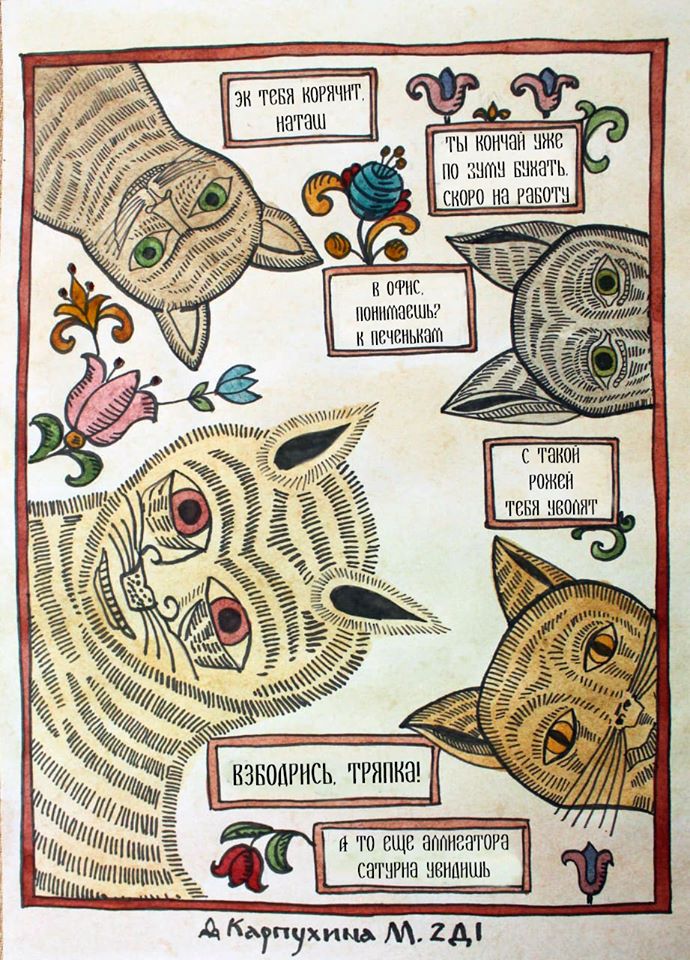 ЭК ТЕБЯ КОРЯЧИТ,
НАТАШ
ТЫ КОНЧАЙ УЖЕ
ПО ЗУМУ БУХАТЬ,
СКОРО НА РАБОТУ
В ОФИС,
ПОНИМАЕШЬ?
К ПЕЧЕНЬКАМ
С ТАКОЙ
РОЖЕЙ
ТЕБЯ УВОЛЯТ
ВЗБОДРИСЬ, ТРЯПКА!
А ТО ЕЩЕ АЛЛИГАТОРА
САТУРНА УВИДИШЬ
Д Карпухина М. 2Д1